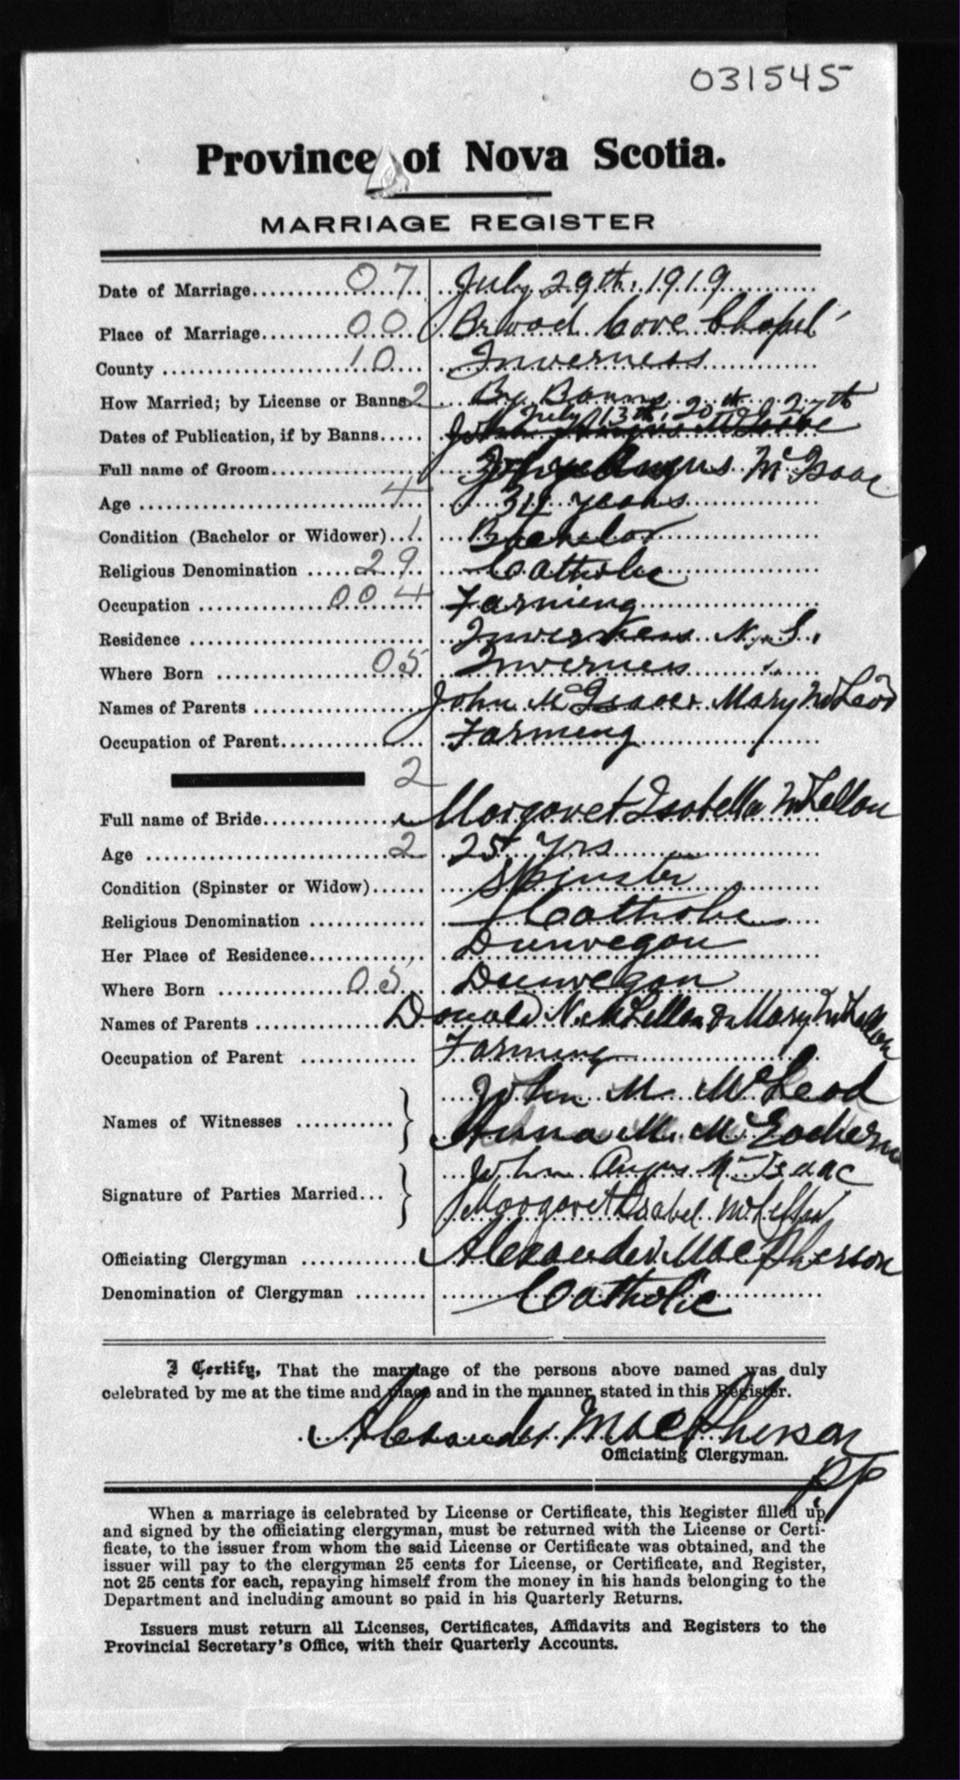 031545
Province of Nova Scotia.
MARRIAGE REGISTER
Date of Marriage 07 July 29th, 1919
Place of Marriage 00 Broad Cove Chapel
County 10 Inverness
How Married; by License or Banns 2 By Banns
Dates of Publication, if by Banns July 13th, 20th & 27th
Full name of Groom Angus McIsaac
Age 4 34 years
Condition (Bachelor or Widower) 1 Bachelor
Religious Denomination 29 Catholic
Occupation 004 Farming
Residence Inverness N. S.
Where Born 05 Inverness
Names of Parents John McIsaac & Mary McLeod
Occupation of Parent Farming
2
Full name of Bride Margaret Isabella McLellan
Age 2 25 yrs
Condition (Spinster or Widow) Spinster
Religious Denomination Catholic
Her Place of Residence Dunvegan
Where Born 05 Dunvegan
Names of Parents Donald N. McLellan & Mary McLellan
Occupation of Parent Farming
John M. McLeod
Names of Witnesses
Anna M. McEachern
John Angus McIsaac
Signature of Parties Married
Margaret Isabel McLellan
Officiating Clergyman Alexander MacPherson
Denomination of Clergyman Catholic
I Certify, That the marriage of the persons above named was duly
celebrated by me at the time and place and in the manner stated in this Register.
Alexander MacPherson
Officiating Clergyman.
P.P.
When a marriage is celebrated by License or Certificate, this Register filled up
and signed by the officiating clergyman, must be returned with the License or Certi-
ficate, to the issuer from whom the said License or Certificate was obtained, and the
issuer will pay to the clergyman 25 cents for License, or Certificate, and Register,
not 25 cents for each, repaying himself from the money in his hands belonging to the
Department and including amount so paid in his Quarterly Returns.
Issuers must return all Licenses, Certificates, Affidavits and Registers to the
Provincial Secretary's Office, with their Quarterly Accounts.